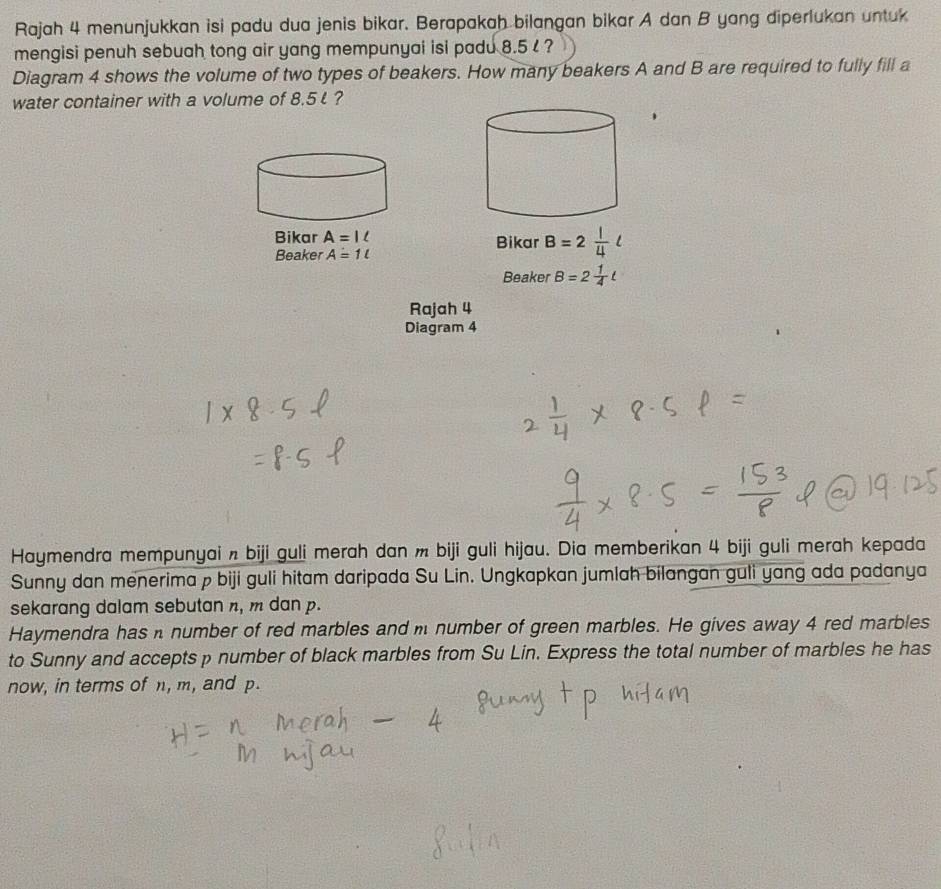 Rajah 4 menunjukkan isi padu dua jenis bikar. Berapakah bilangan bikar A dan B yang diperlukan untuk
mengisi penuh sebuah tong air yang mempunyai isi padu 8.5 ℓ ?
Diagram 4 shows the volume of two types of beakers. How many beakers A and B are required to fully fill a
water container with a volume of 8.5 ℓ ?
Bikar A = 1 ℓ
Beaker A = 1 ℓ
Bikar B = 2 1/4 ℓ
Beaker B = 2 1/4 ℓ
Rajah 4
Diagram 4
1 × 8.5 ℓ
= 8.5 ℓ
2 1/4 × 8.5 ℓ =
9/4 × 8.5 = 153/8 ℓ @ 19.125
Haymendra mempunyai n biji guli merah dan m biji guli hijau. Dia memberikan 4 biji guli merah kepada
Sunny dan menerima p biji guli hitam daripada Su Lin. Ungkapkan jumlah bilangan guli yang ada padanya
sekarang dalam sebutan n, m dan p.
Haymendra has n number of red marbles and m number of green marbles. He gives away 4 red marbles
to Sunny and accepts p number of black marbles from Su Lin. Express the total number of marbles he has
now, in terms of n, m, and p.
H = n merah - 4 sunny + p hitam
m hijau
Sulin